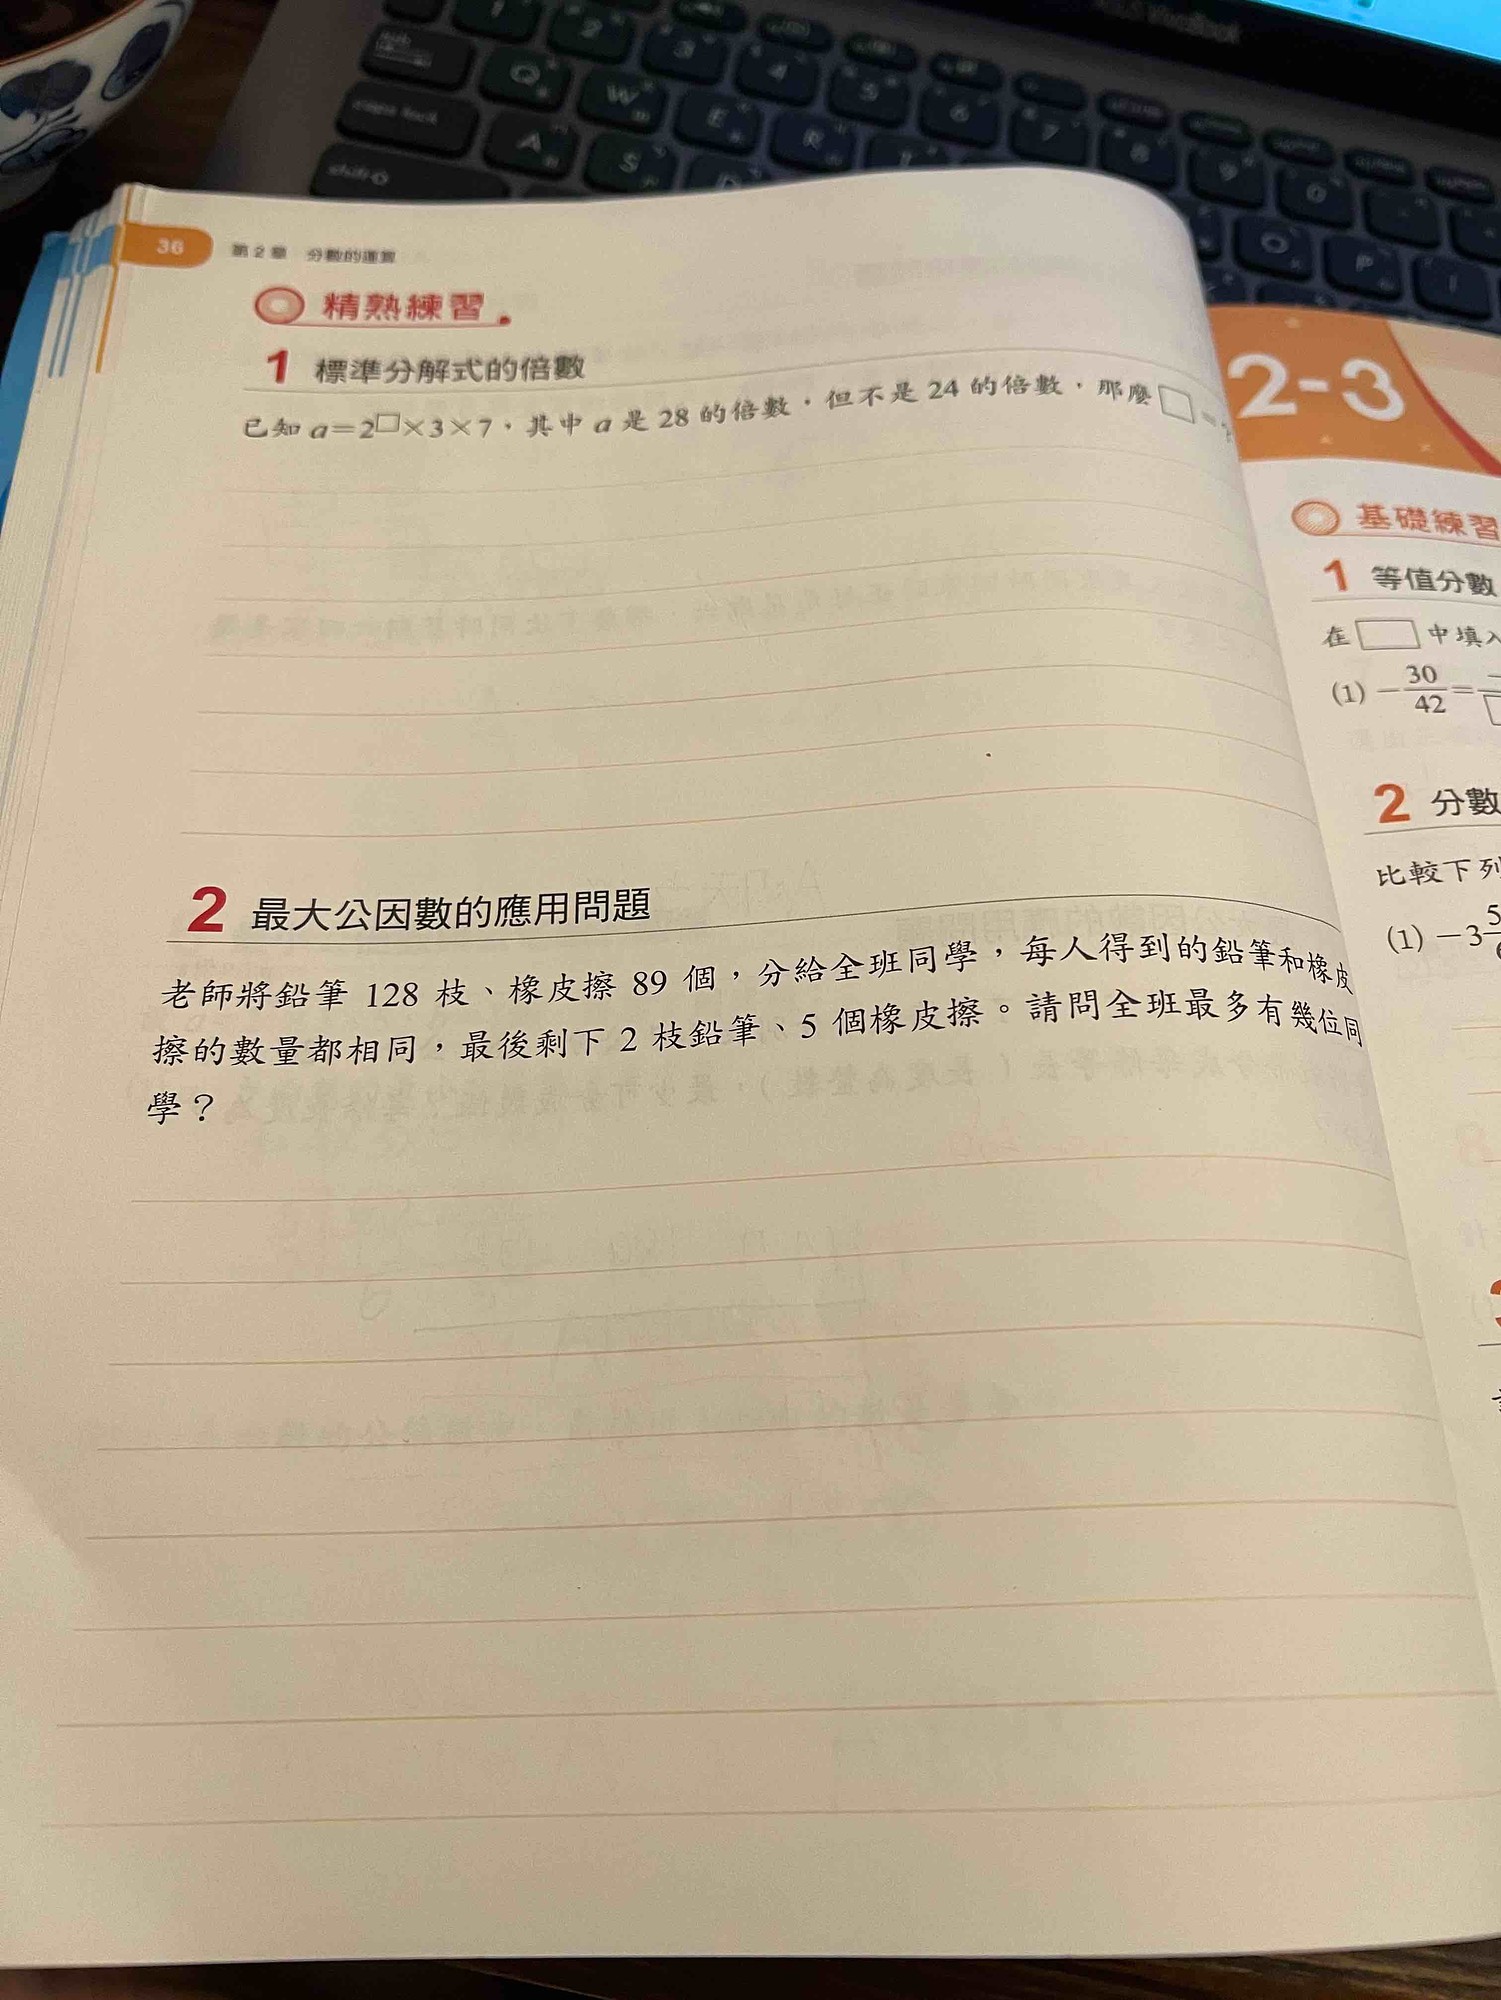 36 第2章 分數的運算
精熟練習
1 標準分解式的倍數
已知 a=2□×3×7,其中 a 是 28 的倍數,但不是 24 的倍數,那麼 □ =?
2 最大公因數的應用問題
老師將鉛筆 128 枝、橡皮擦 89 個,分給全班同學,每人得到的鉛筆和橡皮
擦的數量都相同,最後剩下 2 枝鉛筆、5 個橡皮擦。請問全班最多有幾位同
學?
2-3
基礎練習
1 等值分數
在 □ 中填入
(1) -30/42=
2 分數
比較下列
(1) -3
caps lock
shift
Q W E R
A S D
O P
1 2 3 4 5 6 7 8 9 0